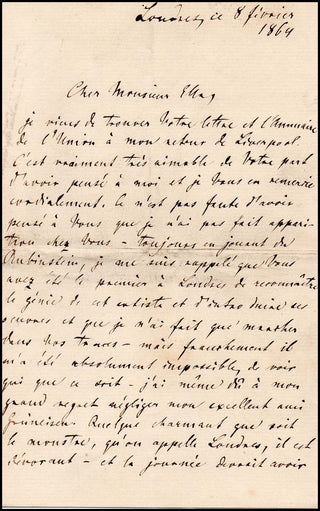 Londres, ce 8 février
1869
Cher Monsieur Ella,
je viens de trouver Votre lettre et l'Annuaire
de l'Union à mon retour de Liverpool.
C'est vraiment très aimable de Votre part
d'avoir pensé à moi et je Vous en remercie
cordialement. Ce n'est pas faute d'avoir
pensé à Vous que je n'ai pas fait appari-
tion chez Vous – toujours en jouant du
Rubinstein, je me suis rappelé que Vous
avez été le premier à Londres de reconnaître
le génie de cet artiste et d'introduire ses
oeuvres et que je n'ai fait que marcher
dans Vos traces – mais franchement il
m'a été absolument impossible, de voir
qui que ce soit – j'ai même dû à mon
grand regret négliger mon excellent ami
Quelque charmant que soit
le monstre, qu'on appelle Londres, il est
dévorant – et la journée devrait avoir